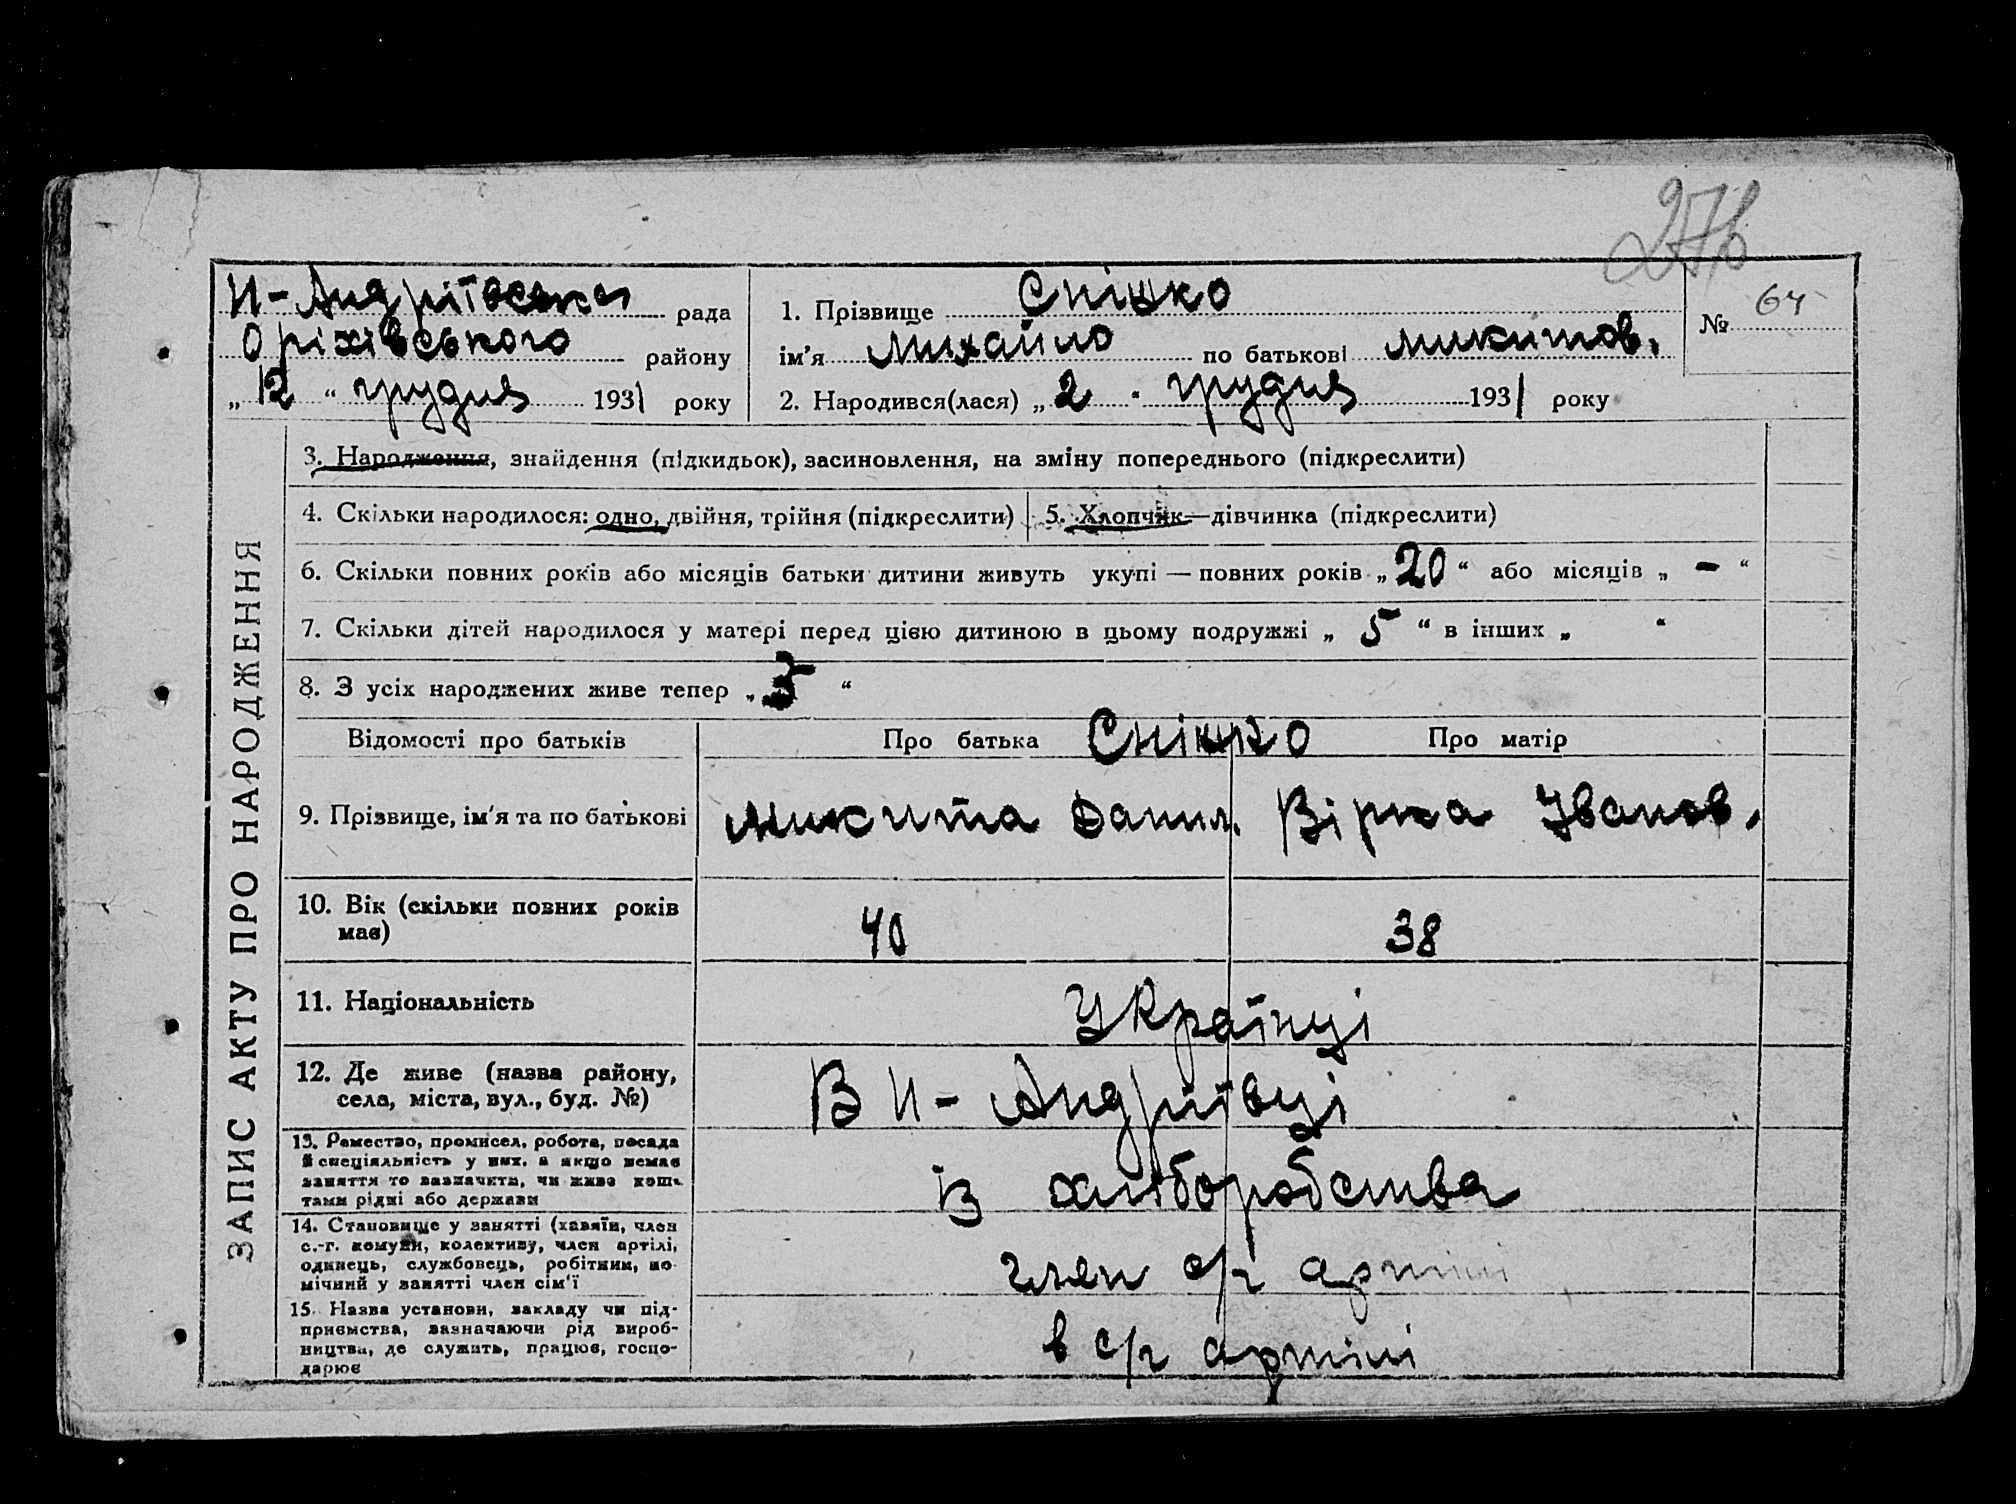 276
Н-Андріївська рада
Оріхівського району
„12“ грудня 1931 року
1. Прізвище Снішко
ім'я Михайло по батькові Микитов.
№ 64
2. Народився(лася) „2“ грудня 1931 року
ЗАПИС АКТУ ПРО НАРОДЖЕННЯ
3. Народження, знайдення (підкидьок), засиновлення, на зміну попереднього (підкреслити)
4. Скільки народилося: одно, двійня, трійня (підкреслити) 5. Хлопчик—дівчинка (підкреслити)
6. Скільки повних років або місяців батьки дитини живуть укупі — повних років „20“ або місяців „ - “
7. Скільки дітей народилося у матері перед цією дитиною в цьому подружжі „ 5 “ в інших „ “
8. З усіх народжених живе тепер „ “
Відомості про батьків Про батька Снішко Про матір
9. Прізвище, ім'я та по батькові Микита Данил. Вірка Іванов.
10. Вік (скільки повних років
має) 40 38
11. Національність Українці
12. Де живе (назва району,
села, міста, вул., буд. №) В Н-Андріївці
13. Ремество, промисел, робота, посада
й спеціяльність у них, а якщо немає
заняття то зазначити, чи живе кош-
тами рідні або держави
із хліборобства
14. Становище у занятті (хазяїн, член
с.-г. комуни, колективу, член артілі,
одинець, службовець, робітник, по-
мічний у занятті член сім'ї
член с/г артілі
15. Назва установи, закладу чи під-
приємства, зазначаючи рід вироб-
ництва, де служить, працює, госпо-
дарює
в с/г артілі